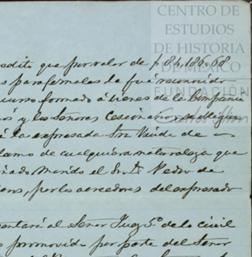 CENTRO DE
ESTUDIOS
DE HISTORIA
DE MÉXICO
FUNDACIÓN
edito que por valor de $84,186.68
le fué reconocido
curso formado á bienes de la Compañia
y los Señores
á la expresada Sra Viuda de
lamo de cualquiera naturaleza que
Mondo el Sr D. Pedro de
por los acreedores del expresado
entará al Señor Juez 5º de lo civil
promovido por parte del Señor